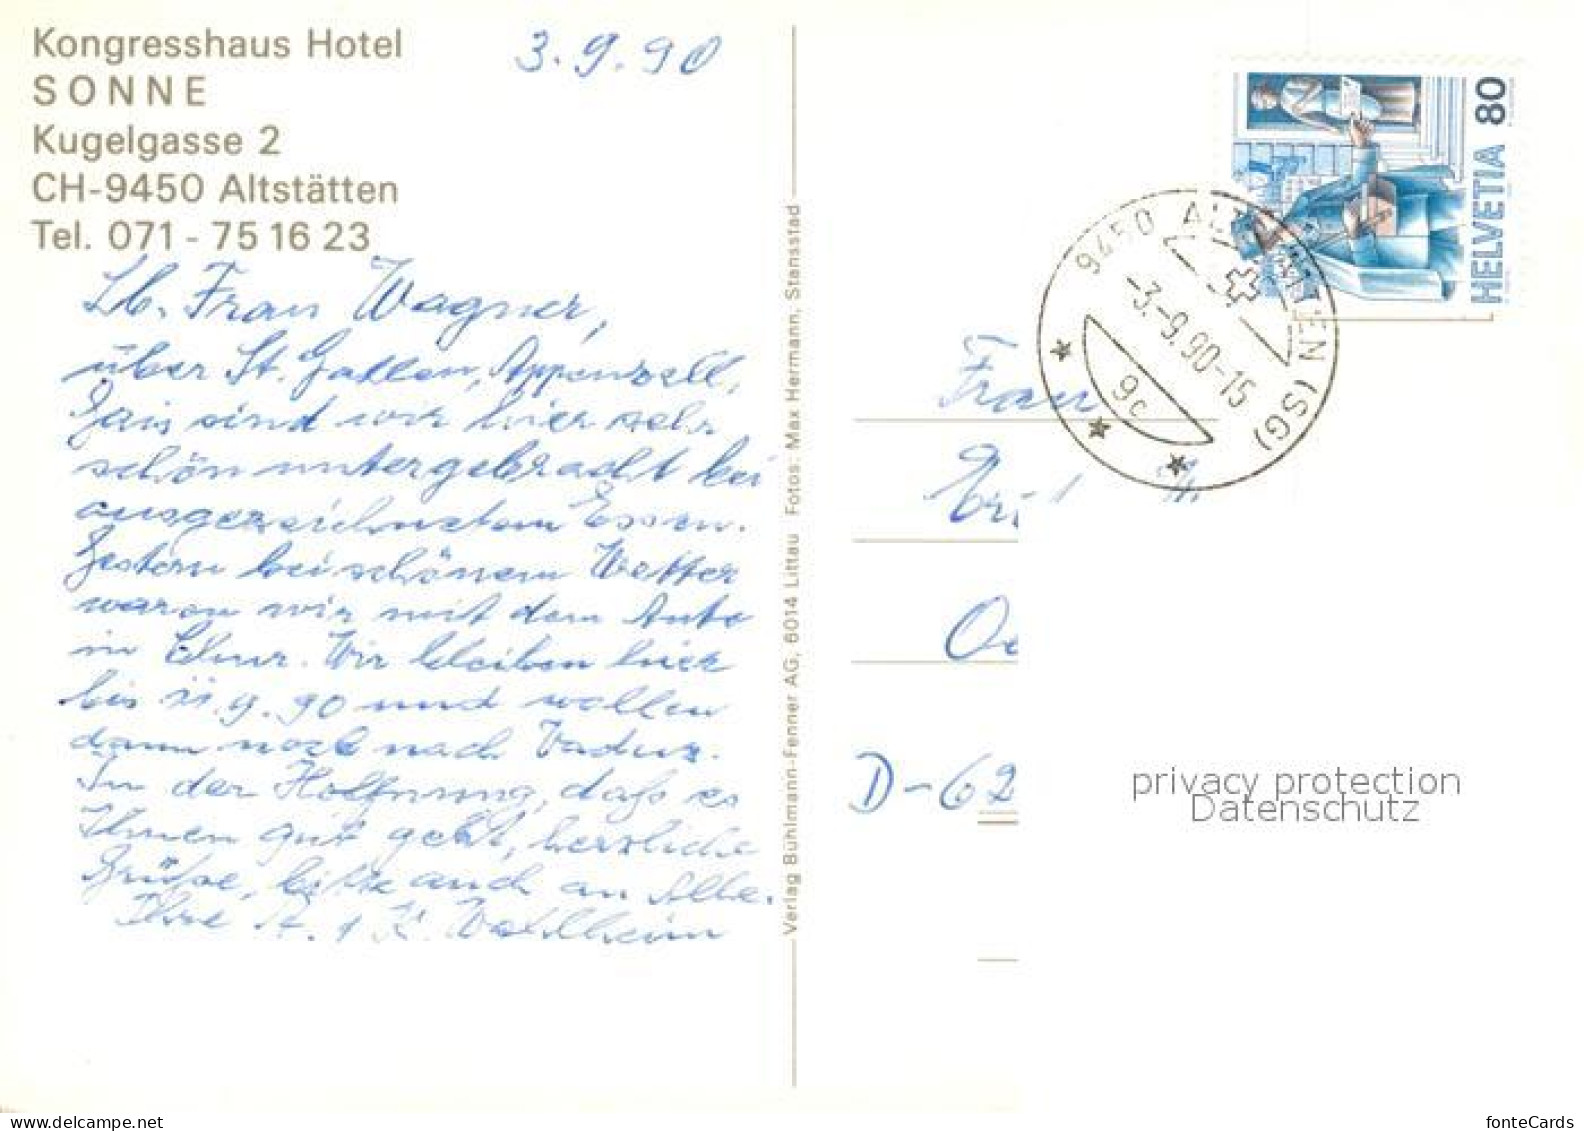 Kongresshaus Hotel
SONNE
Kugelgasse 2
CH-9450 Altstätten
Tel. 071 - 75 16 23
3.9.90
Lb. Frau Wagner,
über St. Gallen, Appenzell,
Gais sind wir hier sehr
schön untergebracht bei
ausgezeichnetem Essen.
Gestern bei schönem Wetter
waren wir mit dem Auto
in Chur. Wir bleiben hier
bis 11.9.90 und wollen
dann noch nach Vaduz.
In der Hoffnung, daß es
Ihnen gut geht, herzliche
Grüße, bitte auch an Alle.
Ihre A. + K.
Verlag Bühlmann-Fenner AG, 6014 Littau Fotos: Max Hermann, Stansstad
HELVETIA 80
9450 ALTSTÄTTEN (SG)
-3.-9.90-15
9c
Frau
D-62
privacy protection
Datenschutz
www.delcampe.net
fonteCards